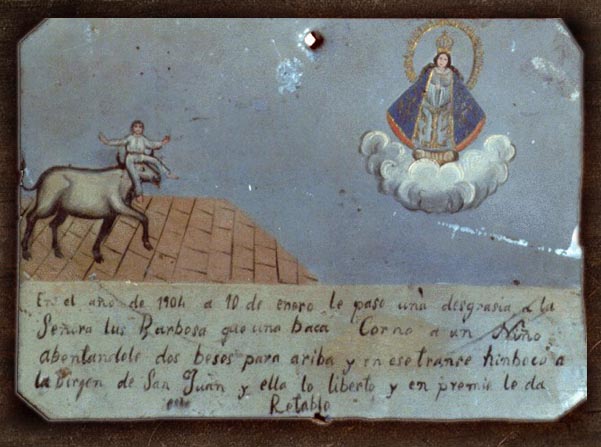 En el año de 1904 a 10 de enero le paso una desgrasia a la
Señora lus Barbosa que una baca Corno a un Niño
abentandole dos beses para ariba y en ese transe hinboco a
la Virgen de San Juan y ella lo liberto y en premio le da
este Retablo